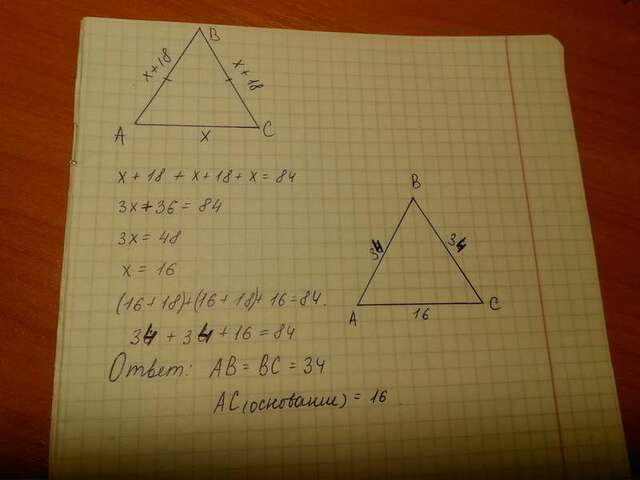 B
x+18
x+18
A
x
C
x + 18 + x + 18 + x = 84
3x + 36 = 84
3x = 48
x = 16
(16+18)+(16+18)+16=84.
34 + 34 + 16 = 84
Ответ: AB = BC = 34
AC (основание) = 16
B
34
34
A
16
C